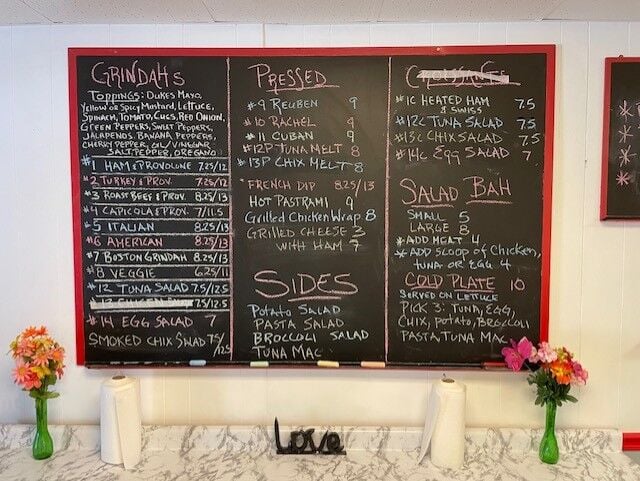 GRINDAHS
TOPPINGS: DUKES MAYO,
YELLOW OR SPICY MUSTARD, LETTUCE,
SPINACH, TOMATO, CUCS, RED ONION,
GREEN PEPPERS, SWEET PEPPERS,
JALAPENOS, BANANA PEPPERS,
CHERRY PEPPER, OIL/VINEGAR
SALT, PEPPER, OREGANO
#1 HAM & PROVOLONE 7.25/12
#2 TURKEY & PROV. 7.25/12
#3 ROAST BEEF & PROV. 8.25/13
#4 CAPICOLA & PROV. 7/11.5
#5 ITALIAN 8.25/13
#6 AMERICAN 8.25/13
#7 BOSTON GRINDAH 8.25/13
#8 VEGGIE 6.25/11
#12 TUNA SALAD 7.5/12.5
7.5/12.5
#14 EGG SALAD 7
SMOKED CHIX SALAD 7.5/12.5
PRESSED
#9 REUBEN 9
#10 RACHEL 9
#11 CUBAN 9
#12P TUNA MELT 8
#13P CHIX MELT 8
FRENCH DIP 8.25/13
HOT PASTRAMI 9
Grilled Chicken Wrap 8
GRILLED CHEESE 3
WITH HAM 7
SIDES
POTATO SALAD
PASTA SALAD
BROCCOLI SALAD
TUNA MAC
#1C HEATED HAM & SWISS 7.5
#12C TUNA SALAD 7.5
#13C CHIX SALAD 7.5
#14C EGG SALAD 7
SALAD BAH
SMALL 5
LARGE 8
*ADD MEAT 4
*ADD SCOOP OF CHICKEN,
TUNA OR EGG 4
COLD PLATE 10
SERVED ON LETTUCE
PICK 3: TUNA, EGG,
CHIX, POTATO, BROCCOLI
PASTA, TUNA MAC
Love